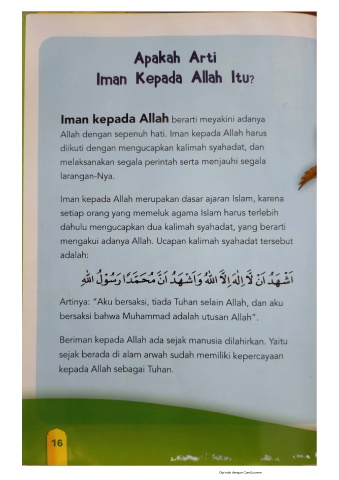 Apakah Arti
Iman Kepada Allah Itu?
Iman kepada Allah berarti meyakini adanya
Allah dengan sepenuh hati. Iman kepada Allah harus
diikuti dengan mengucapkan kalimah syahadat, dan
melaksanakan segala perintah serta menjauhi segala
larangan-Nya.
Iman kepada Allah merupakan dasar ajaran Islam, karena
setiap orang yang memeluk agama Islam harus terlebih
dahulu mengucapkan dua kalimah syahadat, yang berarti
mengakui adanya Allah. Ucapan kalimah syahadat tersebut
adalah:
اَشْهَدُ اَنْ لَّا اِلٰهَ اِلَّا اللّٰهُ وَاَشْهَدُ اَنَّ مُحَمَّدًا رَسُوْلُ اللّٰهِ
Artinya: “Aku bersaksi, tiada Tuhan selain Allah, dan aku
bersaksi bahwa Muhammad adalah utusan Allah”.
Beriman kepada Allah ada sejak manusia dilahirkan. Yaitu
sejak berada di alam arwah sudah memiliki kepercayaan
kepada Allah sebagai Tuhan.
16
Dipindai dengan CamScanner